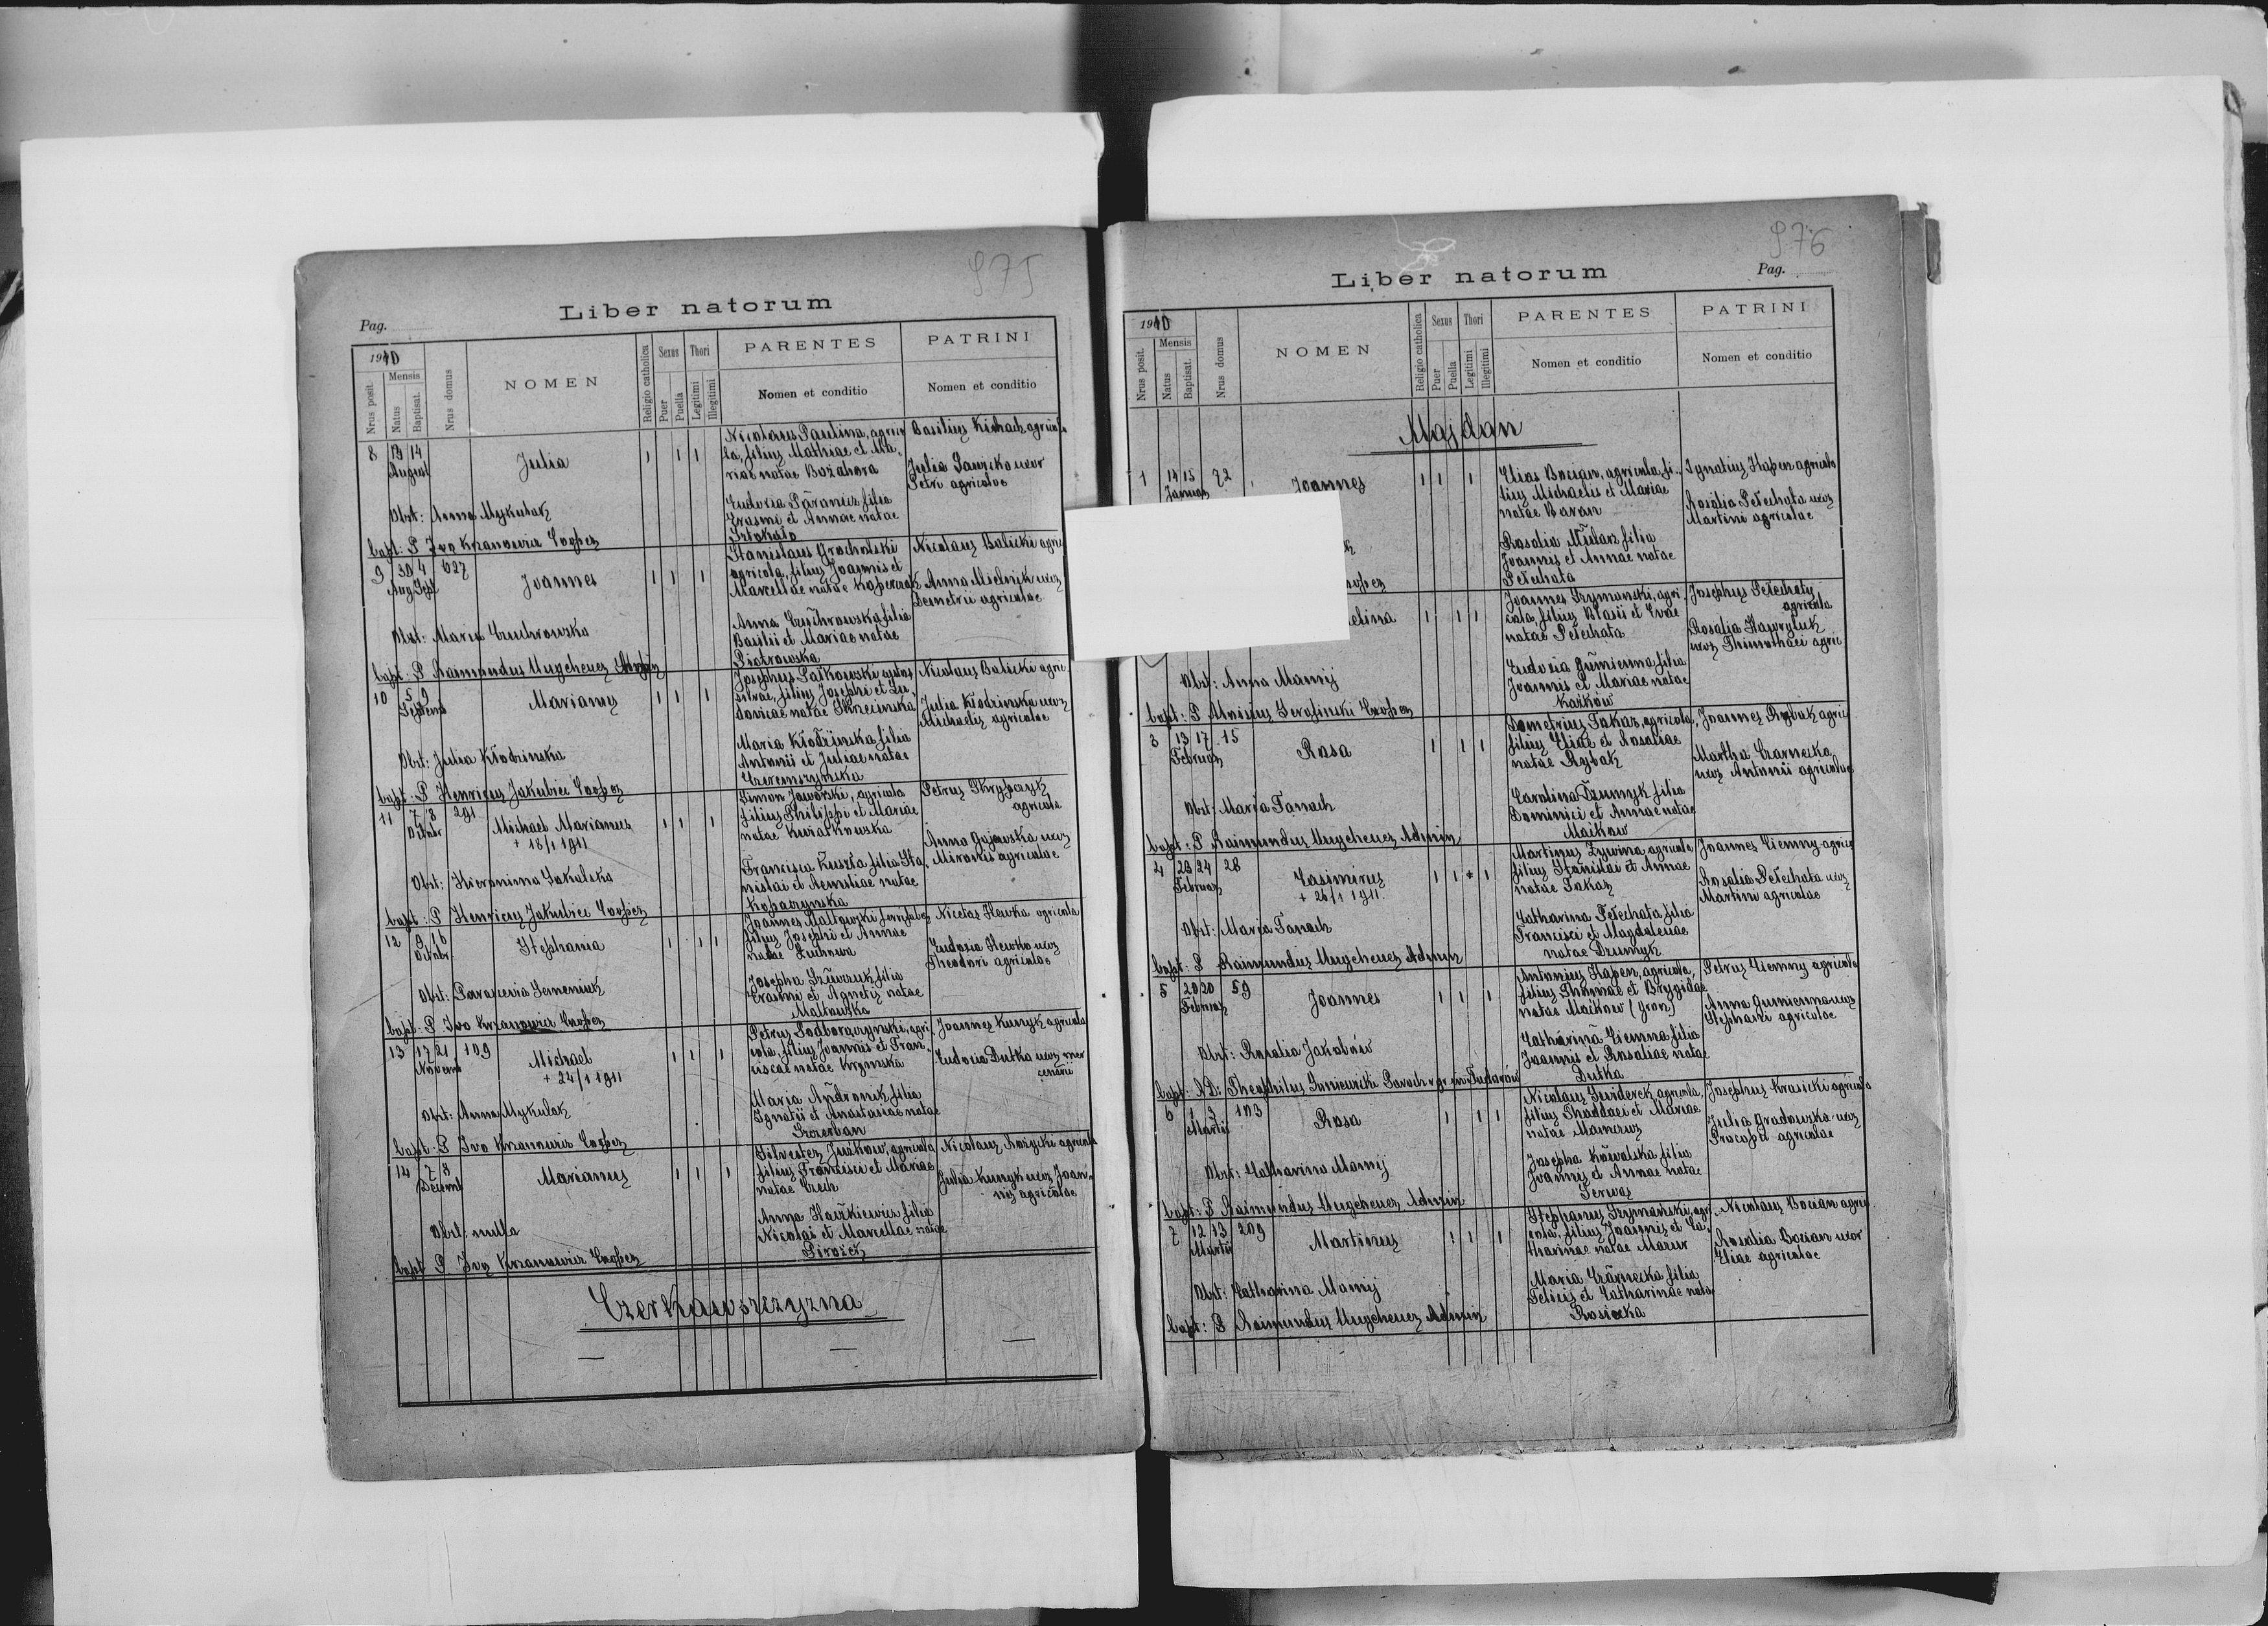 975
Liber natorum
Pag.
1910
Nrus posit.
Mensis
Natus
Baptisat.
Nrus domus
NOMEN
Religio catholica
Sexus
Puer
Puella
Thori
Legitimi
Illegitimi
PARENTES
Nomen et conditio
PATRINI
Nomen et conditio
8 13 14 August
Julia
Nicolaus Paulina, agrico
la, filius Mathiae et Ma
riae natae Bożahora
Eudoxia filia
Erasmi et Annae natae
Basilius agricola
Julia uxor
Petri agricolae
Obst: Anna Mykulak
bapt: P Ivo Krzanowicz Cooper
9 30 4 627
Aug Sept
Joannes
Stanislaus Grocholski
agricola, filius Joannis et
Marcellae natae
Anna filia
Basilii et Mariae natae
Piotrowska
Nicolaus Balicki agric
Anna Mielnik uxor
Demetrii agricolae
Obst: Maria
bapt: P Raimundus
10 5 9
Septemb
Marianus
Josephus custos
silvae, filius Josephi et Lu
dovicae natae
Maria Kłodzinska filia
Antonii et Juliae natae
Nicolaus Balicki agric
Julia Kłodzinska uxor
Michaelis agricolae
Obst: Julia Kłodzinska
bapt: P Henricus Jakubiec Cooper
11 7 8 291
Octobr
Michael Marianus
+ 18/1 1911
Simon Jaworski, agricola
filius Philippi et Mariae
natae Kwiatkowska
Francisca filia Sta
nislai et Aemiliae natae
Kopaczynska
Petrus Skrypczyk
agricola
Anna Gajewska uxor
Mironis agricolae
Obst: Hieronima
bapt: P Henricus Jakubiec Cooper
12 9 10
Octobr
Stephania
Joannes Maltowski
filius Josephi et Annae
natae
Josepha filia
Erasmi et Agnetis natae
Maltowska
Nicetas Hewka agricola
Eudoxia Hewko uxor
Theodori agricolae
Obst: Paraxevia Semeniuk
bapt: P Ivo Krzanowicz Cooper
13 17 21 109
Novemb
Michael
+ 24/1 1911
Petrus agri
cola, filius Joannis et Fran
ciscae natae Krymska
Maria Andronik filia
Ignatii et Anastasiae natae
Szczerban
Joannes Kunyk agricola
Eudocia Dutka uxor mer
cenarii
Obst: Anna Mykulak
bapt: P Ivo Krzanowicz Cooper
14 7 8
Decemb
Marianus
Silvester agricola
filius Francisci et Mariae
natae Czech
Anna filia
Nicolai et Marcellae natae
Nicolaus Rożycki agricola
Julia Kunyk uxor Joan
nis agricolae
Obst: nulla
bapt P Ivo Krzanowicz Cooper
Czerkawszczyzna
— — —
976
Liber natorum
Pag.
1910
Nrus posit.
Mensis
Natus
Baptisat.
Nrus domus
NOMEN
Religio catholica
Sexus
Puer
Puella
Thori
Legitimi
Illegitimi
PARENTES
Nomen et conditio
PATRINI
Nomen et conditio
Majdan
1 14 15 72
Januar
Joannes
Elias Bocian, agricola, fi
lius Michaelis et Mariae
natae Baran
Rosalia filia
Joannis et Annae natae
Petechata
Ignatius Hapen agricola
Rosalia Petechata uxor
Martini agricolae
elina
Joannes Szymanski, agri
cola, filius Blasii et Evae
natae Petechata
Eudoxia Gumienna filia
Joannis et Mariae natae
Josephus Petechaty
agricola
Rosalia Hawryluk
uxor Thimothaei agric
Obst: Anna Mamij
bapt: P Aloisius Serafinski Cooper
3 13 17 15
Februar
Rosa
Demetrius Takaz, agricola,
filius Eliae et Rosaliae
natae Rybak
Carolina Dzumyk filia
Dominici et Annae natae
Joannes Rybak agric
Martha Czarnecka
uxor Antonii agricolae
Obst: Maria Tanach
bapt: P Raimundus Admin
4 23 24 28
Februar
Casimirus
+ 26/1 1911.
Martinus Zywina agricola
filius Stanislai et Annae
natae Takaz
Catharina Petechata filia
Francisci et Magdalenae
natae Dzumyk
Joannes Ciemny agric
Rosalia Petechata uxor
Martini agricolae
Obst: Maria Tanach
bapt: P Raimundus Admin
5 20 20 59
Februar
Joannes
Antonius Hapen, agricola,
filius Thomae et Brygidae
natae
Catharina Ciemna filia
Joannis et Rosaliae natae
Dutka
Petrus Ciemny agricola
Anna Gumienna uxor
Stephani agricolae
Obst: Rosalia Jakobów
bapt: AD: Theophilus Paroch
6 1 3 103
Martii
Rosa
Nicolaus agricola,
filius Thaddaei et Mariae
natae
Josepha Kowalska filia
Joannis et Annae natae
Josephus Krasicki agricola
Julia Gradowska uxor
Procopii agricolae
Obst: Catharina Mamij
bapt: P Raimundus Admin
7 12 13 209
Martii
Martinus
Stephanus Szymanski, agri
cola, filius Joannis et Ca
tharinae natae Mazur
Maria Czarnecka filia
Felicis et Catharinae natae
Nicolaus Bocian agric
Rosalia Bocian uxor
Eliae agricolae
Obst: Catharina Mamij
bapt: P Raimundus Admin